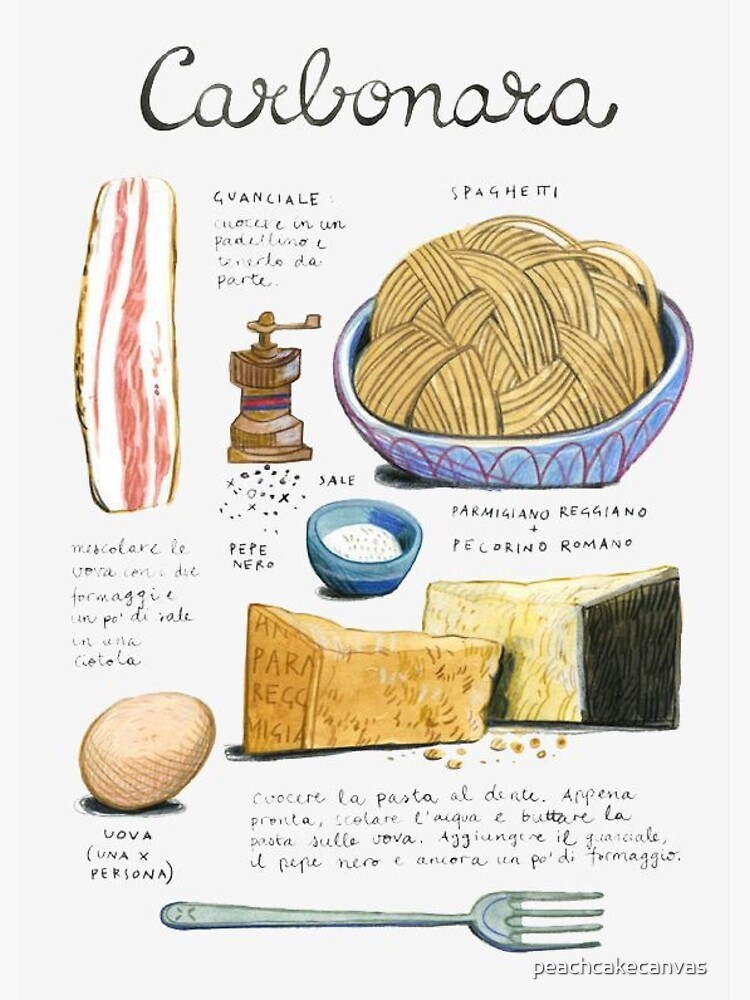 Carbonara
GUANCIALE:
cuocere in un
padellino e
tenerlo da
parte.
SPAGHETTI
SALE
PEPE
NERO
PARMIGIANO REGGIANO
+
PECORINO ROMANO
mescolare le
uova con i due
formaggi e
un po' di sale
in una
ciotola
AN
PARM
REGG
MIGIA
UOVA
(UNA X
PERSONA)
cuocere la pasta al dente. Appena
pronta, scolare l'acqua e buttare la
pasta sulle uova. Aggiungere il guanciale,
il pepe nero e ancora un po' di formaggio.
peachcakecanvas